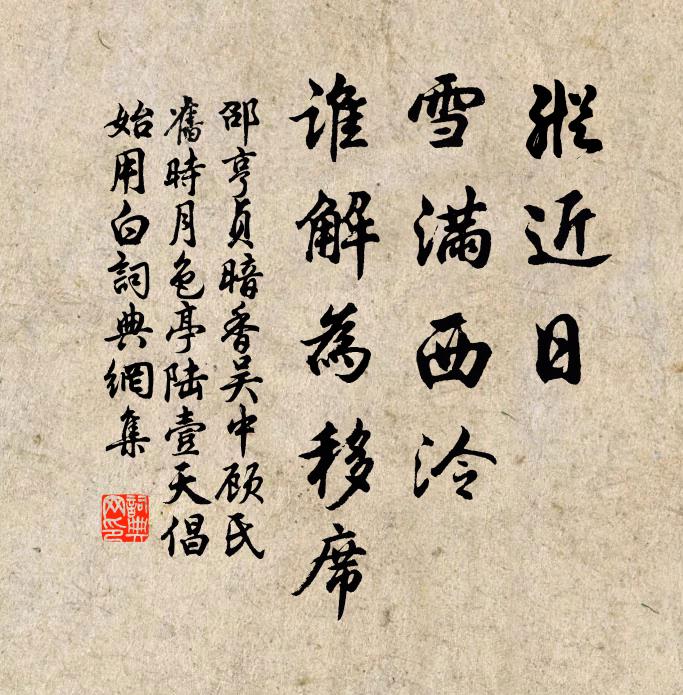 縱近日
雪滿西泠
誰解為移席
邵亨貞暗香吴中顾氏
舊時月色亭陆壹天倡
始用白詞典網集
詞典
网印